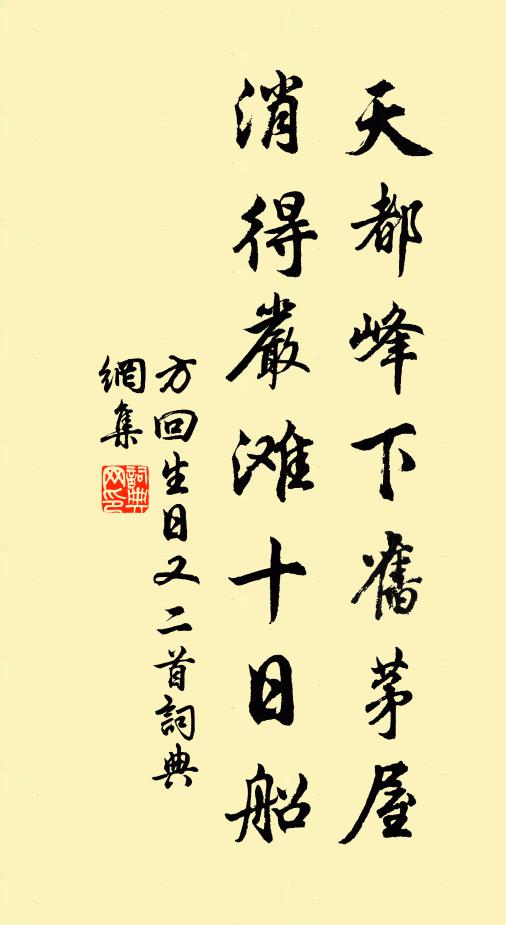 天都峰下舊茅屋
消得嚴滩十日船
方回生日又二首詞典
網集
詞典網印